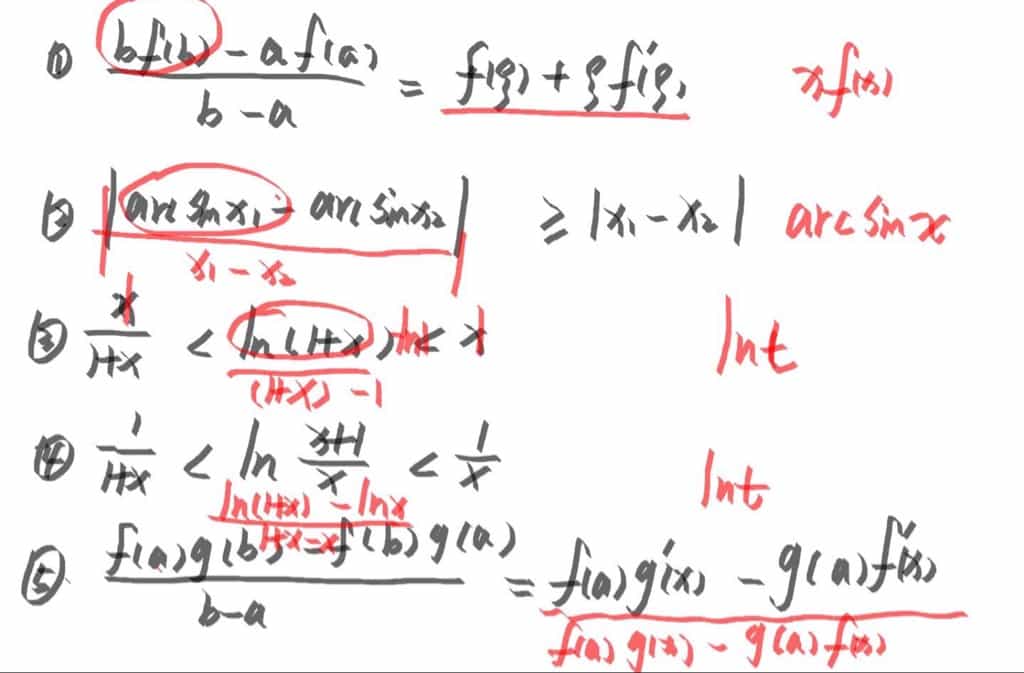 ① bf(b) - af(a) / b - a = f(ξ) + ξf'(ξ) xf(x)
② |arcsinx₁ - arcsinx₂| / x₁ - x₂ ≥ |x₁ - x₂| arcsinx
③ x / 1+x < ln(1+x) - ln1 < x lnt
(1+x) - 1
④ 1 / 1+x < ln x+1 / x < 1 / x lnt
ln(1+x) - lnx / 1+x-x
⑤ f(a)g(b) - f(b)g(a) / b-a = f(a)g'(x) - g(a)f'(x)
f(a)g(x) - g(a)f(x)